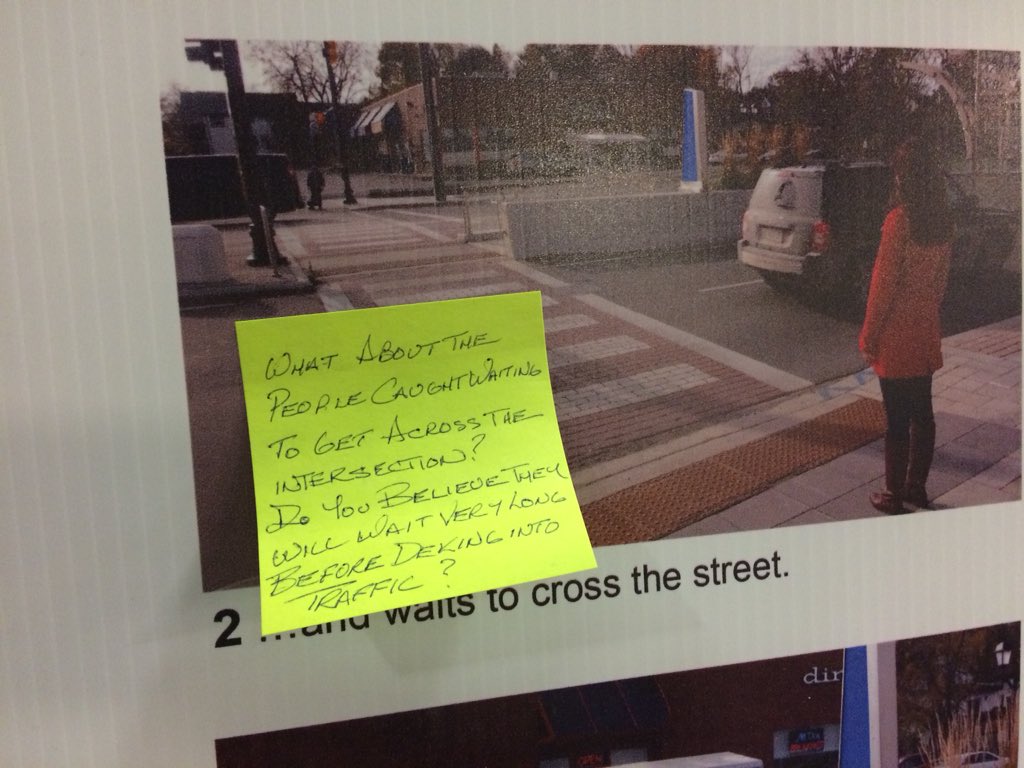 WHAT ABOUT THE
PEOPLE CAUGHT WAITING
TO GET ACROSS THE
INTERSECTION?
DO YOU BELIEVE THEY
WILL WAIT VERY LONG
BEFORE DEKING INTO
TRAFFIC?
2 ...and waits to cross the street.
dir
OPEN